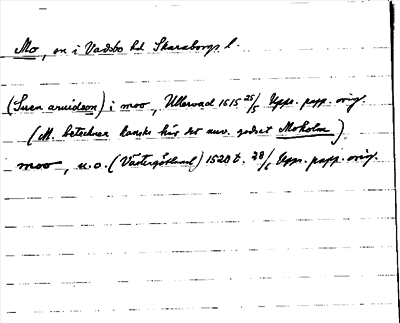 Mo, on i Vadsbo hd Skaraborgs l.
(Swen arwidson) i moo, Ullervad 1515 25/5 Upps. papp. orig.
(M. betecknar kanske här det nuv. godset Moholm)
moo, u.o. (Västergötland) 1520 t. 28/6 Upps. papp. orig.